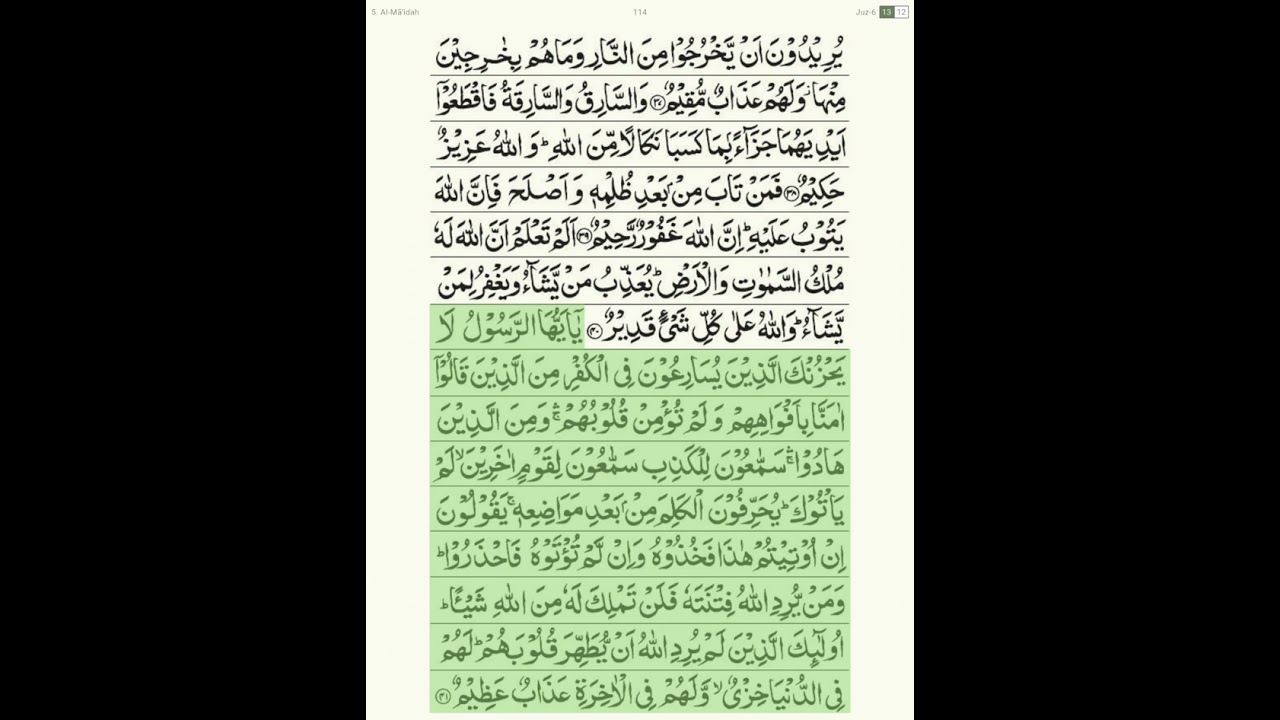 5. Al-Mā'idah 114 Juz-6 13 12
يُرِيْدُوْنَ اَنْ يَّخْرُجُوْا مِنَ النَّارِ وَمَا هُمْ بِخٰرِجِيْنَ
مِنْهَا ۫ وَلَهُمْ عَذَابٌ مُّقِيْمٌ ﴿۳۷﴾ وَالسَّارِقُ وَالسَّارِقَةُ فَاقْطَعُوْۤا
اَيْدِيَهُمَا جَزَآءًۢ بِمَا كَسَبَا نَكَالًا مِّنَ اللّٰهِ ؕ وَ اللّٰهُ عَزِيْزٌ
حَكِيْمٌ ﴿۳۸﴾ فَمَنْ تَابَ مِنْۢ بَعْدِ ظُلْمِهٖ وَ اَصْلَحَ فَاِنَّ اللّٰهَ
يَتُوْبُ عَلَيْهِ ؕ اِنَّ اللّٰهَ غَفُوْرٌ رَّحِيْمٌ ﴿۳۹﴾ اَلَمْ تَعْلَمْ اَنَّ اللّٰهَ لَهٗ
مُلْكُ السَّمٰوٰتِ وَالْاَرْضِ ؕ يُعَذِّبُ مَنْ يَّشَآءُ وَيَغْفِرُ لِمَنْ
يَّشَآءُ ؕ وَاللّٰهُ عَلٰى كُلِّ شَىْءٍ قَدِيْرٌ ﴿۴۰﴾ يٰۤاَيُّهَا الرَّسُوْلُ لَا
يَحْزُنْكَ الَّذِيْنَ يُسَارِعُوْنَ فِى الْكُفْرِ مِنَ الَّذِيْنَ قَالُوْۤا
اٰمَنَّا بِاَفْوَاهِهِمْ وَ لَمْ تُؤْمِنْ قُلُوْبُهُمْ ۛۚ وَمِنَ الَّذِيْنَ
هَادُوْا ۛۚ سَمّٰعُوْنَ لِلْكَذِبِ سَمّٰعُوْنَ لِقَوْمٍ اٰخَرِيْنَ ۙ لَمْ
يَاْتُوْكَ ؕ يُحَرِّفُوْنَ الْكَلِمَ مِنْۢ بَعْدِ مَوَاضِعِهٖ ۚ يَقُوْلُوْنَ
اِنْ اُوْتِيْتُمْ هٰذَا فَخُذُوْهُ وَاِنْ لَّمْ تُؤْتَوْهُ فَاحْذَرُوْا ؕ
وَمَنْ يُّرِدِ اللّٰهُ فِتْنَتَهٗ فَلَنْ تَمْلِكَ لَهٗ مِنَ اللّٰهِ شَيْـًٔا ؕ
اُولٰٓئِكَ الَّذِيْنَ لَمْ يُرِدِ اللّٰهُ اَنْ يُّطَهِّرَ قُلُوْبَهُمْ ؕ لَهُمْ
فِى الدُّنْيَا خِزْىٌ ۙ وَّلَهُمْ فِى الْاٰخِرَةِ عَذَابٌ عَظِيْمٌ ﴿۴۱﴾